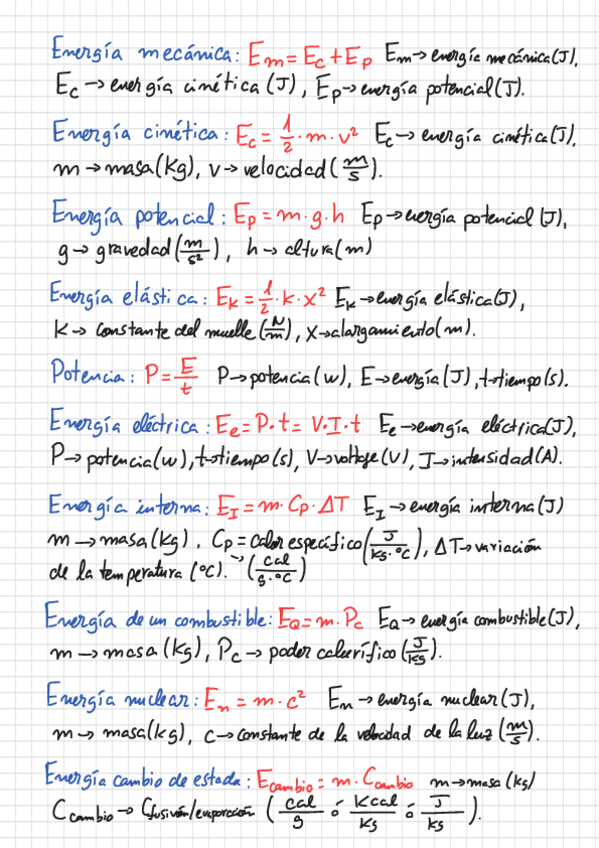 Energía mecánica: Em = Ec + Ep Em → energía mecánica (J),
Ec → energía cinética (J), Ep → energía potencial (J).
Energía cinética: Ec = 1/2 · m · v² Ec → energía cinética (J),
m → masa (Kg), v → velocidad (m/s).
Energía potencial: Ep = m · g · h Ep → energía potencial (J),
g → gravedad (m/s²), h → altura (m)
Energía elástica: Ek = 1/2 · k · x² Ek → energía elástica (J),
K → constante del muelle (N/m), X → alargamiento (m).
Potencia: P = E/t P → potencia (w), E → energía (J), t → tiempo (s).
Energía eléctrica: Ee = P · t = V · I · t Ee → energía eléctrica (J),
P → potencia (w), t → tiempo (s), V → voltaje (V), I → intensidad (A).
Energía interna: EI = m · Cp · ΔT EI → energía interna (J)
m → masa (kg), Cp = calor específico (J/kg·°C), ΔT → variación
de la temperatura (°C). → (cal/g·°C)
Energía de un combustible: EQ = m · Pc EQ → energía combustible (J),
m → masa (kg), Pc → poder calorífico (J/kg).
Energía nuclear: En = m · c² En → energía nuclear (J),
m → masa (kg), c → constante de la velocidad de la luz (m/s).
Energía cambio de estado: Ecambio = m · Ccambio m → masa (kg)
Ccambio → Cfusión/evaporación (cal/g ó Kcal/kg ó J/kg).